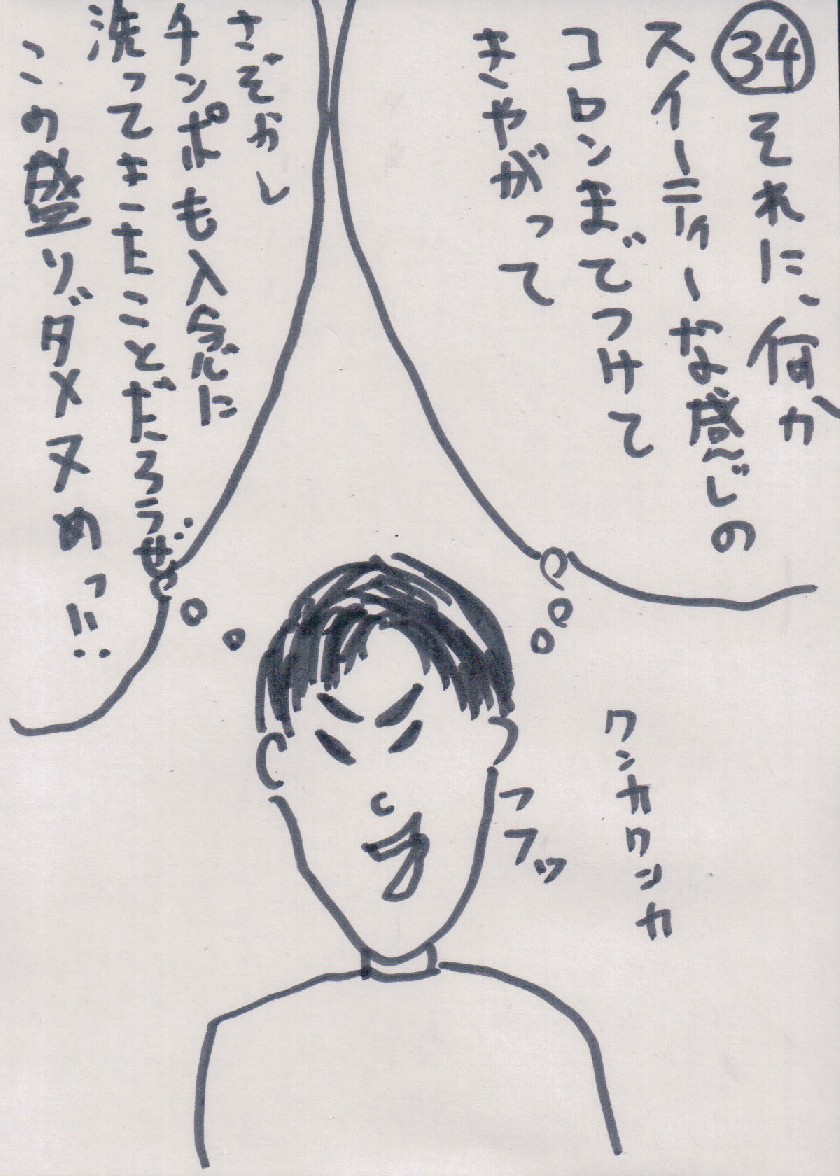 34
それに、何か
スイーティーな感じの
コロンまでつけて
きやがって
さぞかし
チンポも入念に
洗ってきたことだろうぜ
この盛りダメヌめっ!!
フフッ
ワンカワンカ